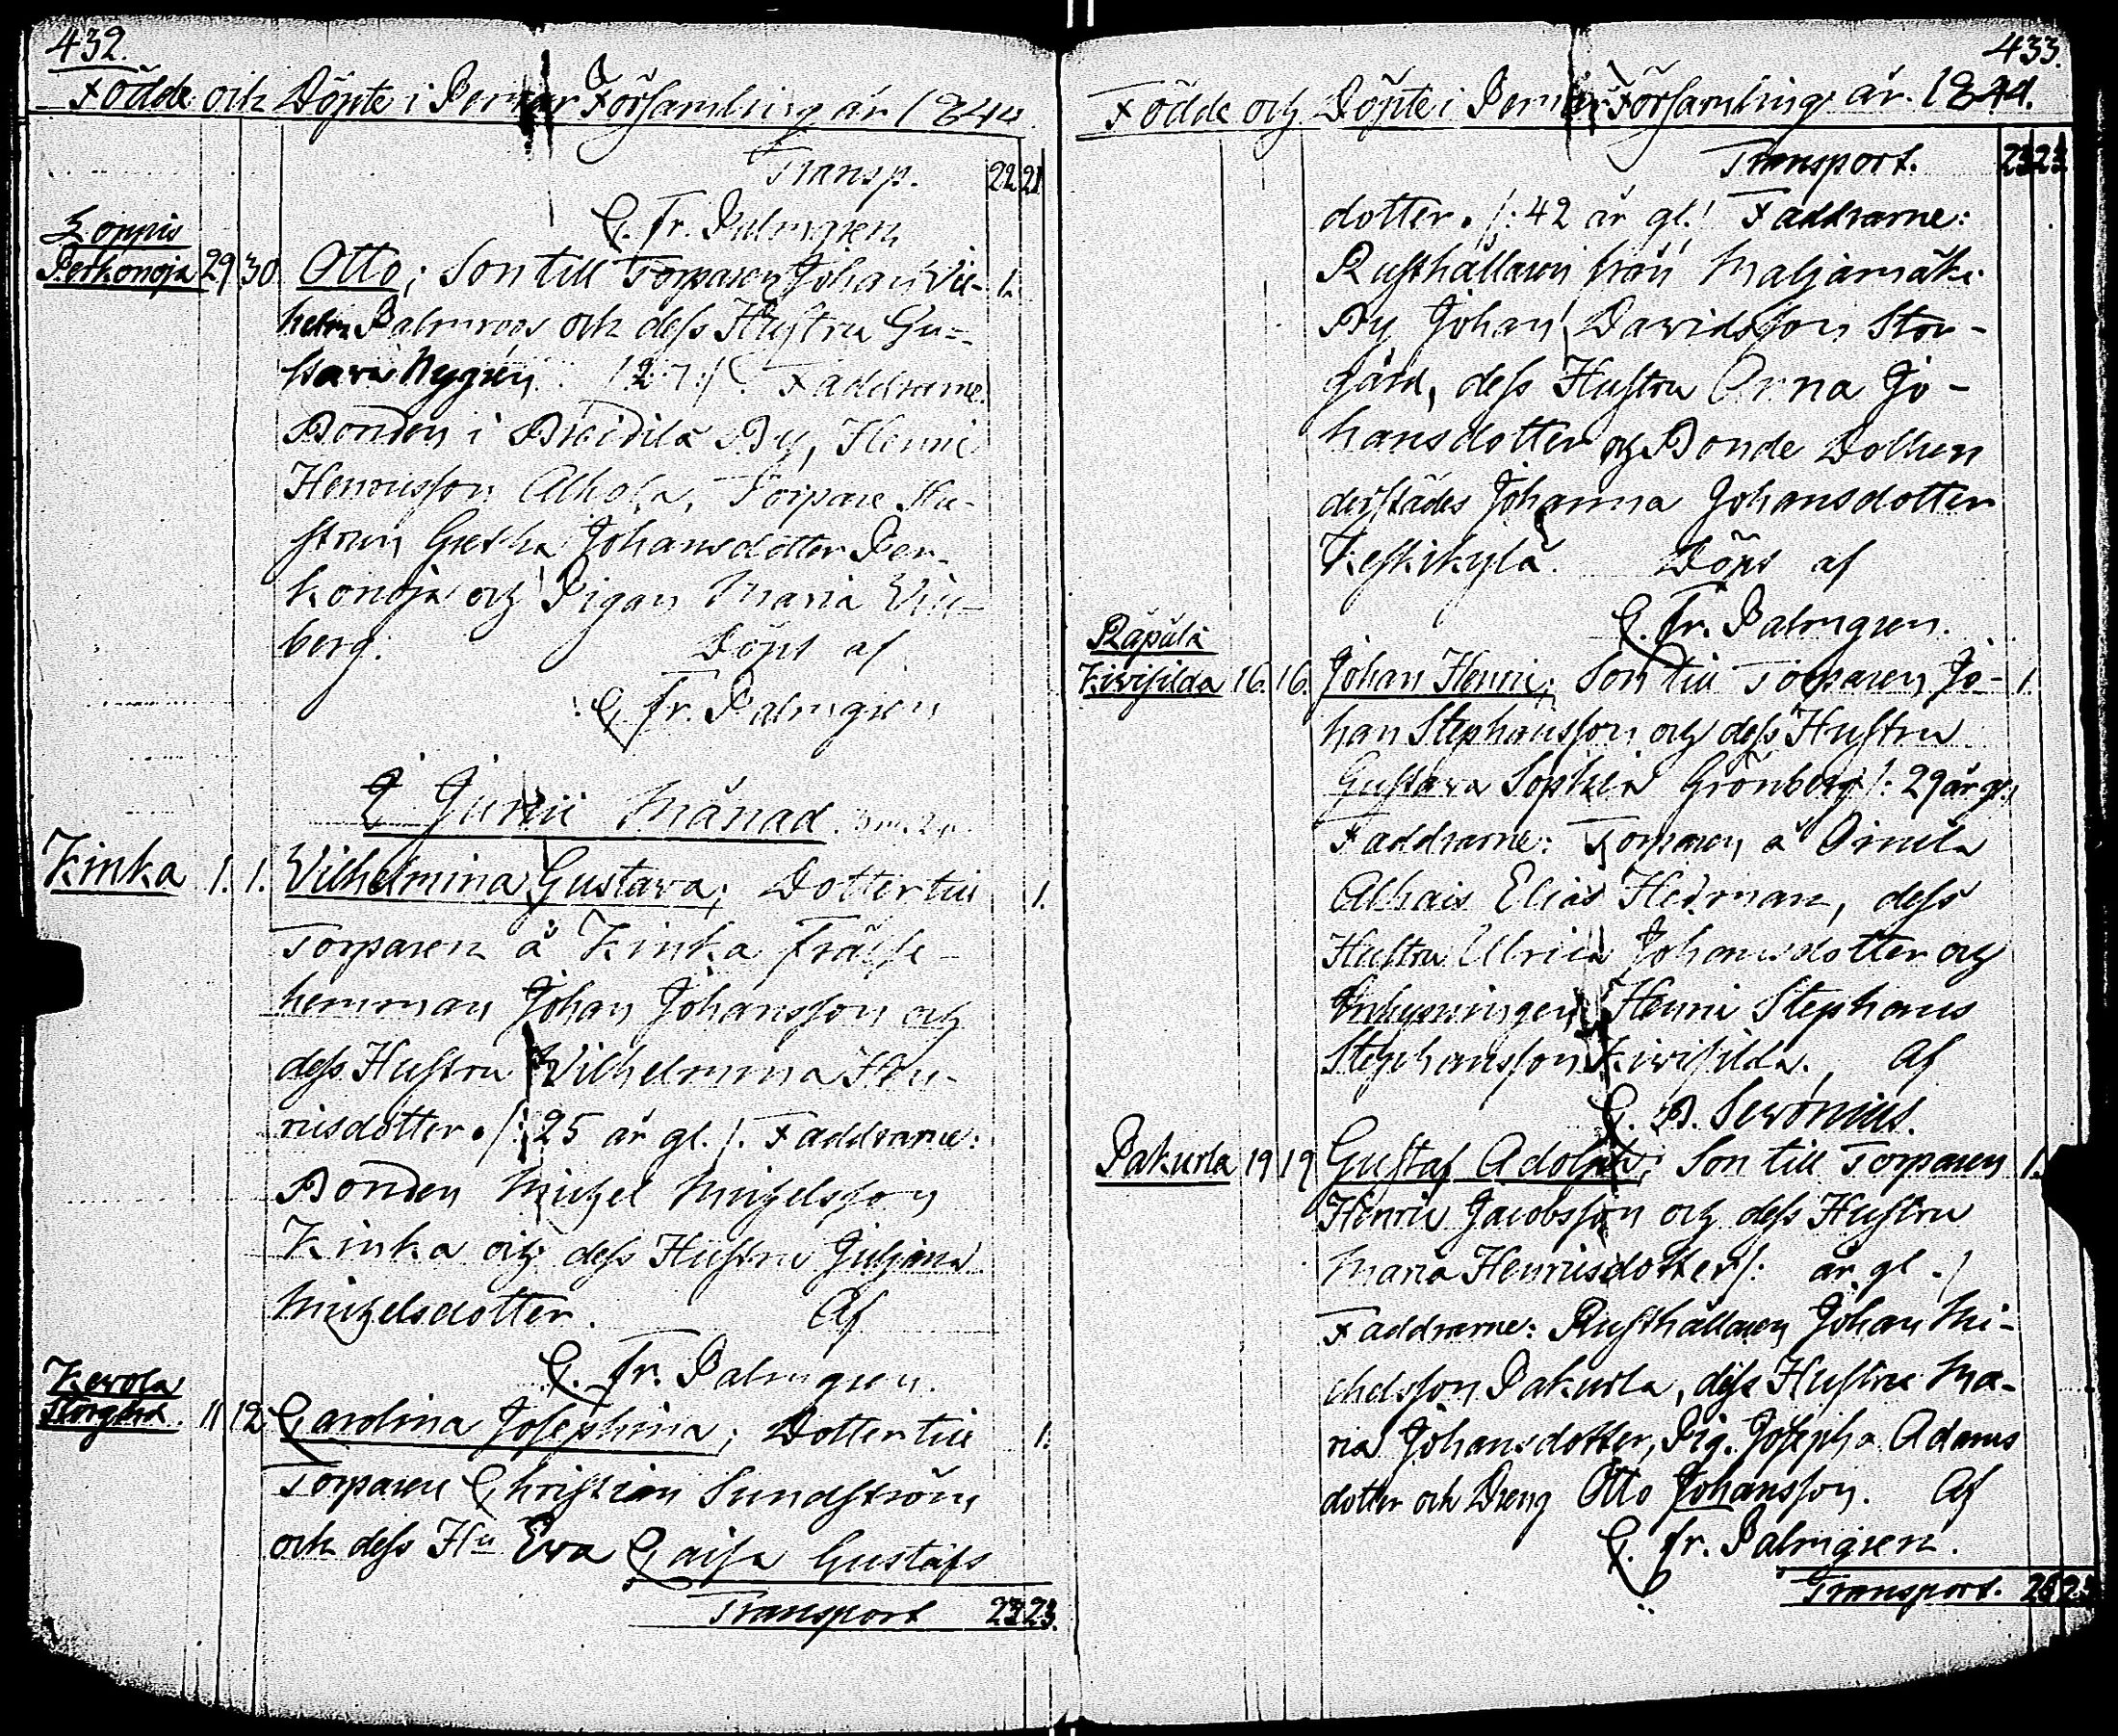 432.
Födde och Döpte i Pernar Församling år 1844
Transp. 22 21
C. Fr. Palmgren
Loppis
Perkonoja 29 30 Otto; Son till Torparen Johan Vil- 1.
helm Palmroos och dess Hustru Gu-
stava Nygrén. /: 27 :/ Faddrarne:
Bonden i Preidilä By, Henric
Henricsson Alhola, Torpare Hu-
strun Gretha Johansdotter Per-
konoja och Pigan Maria Vik-
berg. Döpt af
C. Fr. Palmgren
I Junii Månad.
Kinka 1. 1. Vilhelmina Gustava; Dotter till 1.
Torparen å Kinka Frälse-
hemman Johan Johansson och
dess Hustru Vilhelmina Hen-
ricsdotter. /: 25 år gl. /. Faddrarne:
Bonden Michel Michelsson
Kinka och dess Hustru Juliana
Michelsdotter. Af
C. Fr. Palmgren.
Kerola
Storgård 11 12 Carolina Josephina; Dotter till 1.
Torparen Christian Sundström
och dess Hu Eva Caisa Gustafs
Transport 23 23.
433.
Födde och Döpte i Pernar Församling år. 1844.
Transport. 23 23
dotter. /: 42 år gl. / Faddrarne:
Rusthållaren från Maljamäki
By Johan Davidsson Stor-
gård, dess Hustru Anna Jo-
hansdotter och Bonde Dottren
derstädes Johanna Johansdotter
Keskikylä. Döpt af
C. Fr. Palmgren.
Rapula
Kivisilda 16. 16. Johan Henric; Son till Torparen Jo- 1.
han Stephansson och dess Hustru
Gustava Sophia Grönberg /: 29 år gl.
Faddrarne: Torparen å Oinila
Alhais Elias Hedman, dess
Hustru Ulrica Johansdotter och
Inhysningen Henric Stephans
Stephansson Kivisilda. Af
G. A. Serónius.
Pakurla 19 19 Gustaf Adolph; Son till Torparen 1.
Henric Jacobsson och dess Hustru
Maria Henricsdotter /: år gl. /
Faddrarne: Rusthållaren Johan Mi-
chelsson Pakurla, dess Hustru Ma-
ria Johansdotter, Pig. Josepha Adams
dotter och Dreng Otto Johansson. Af
C. Fr. Palmgren.
Transport. 25 23